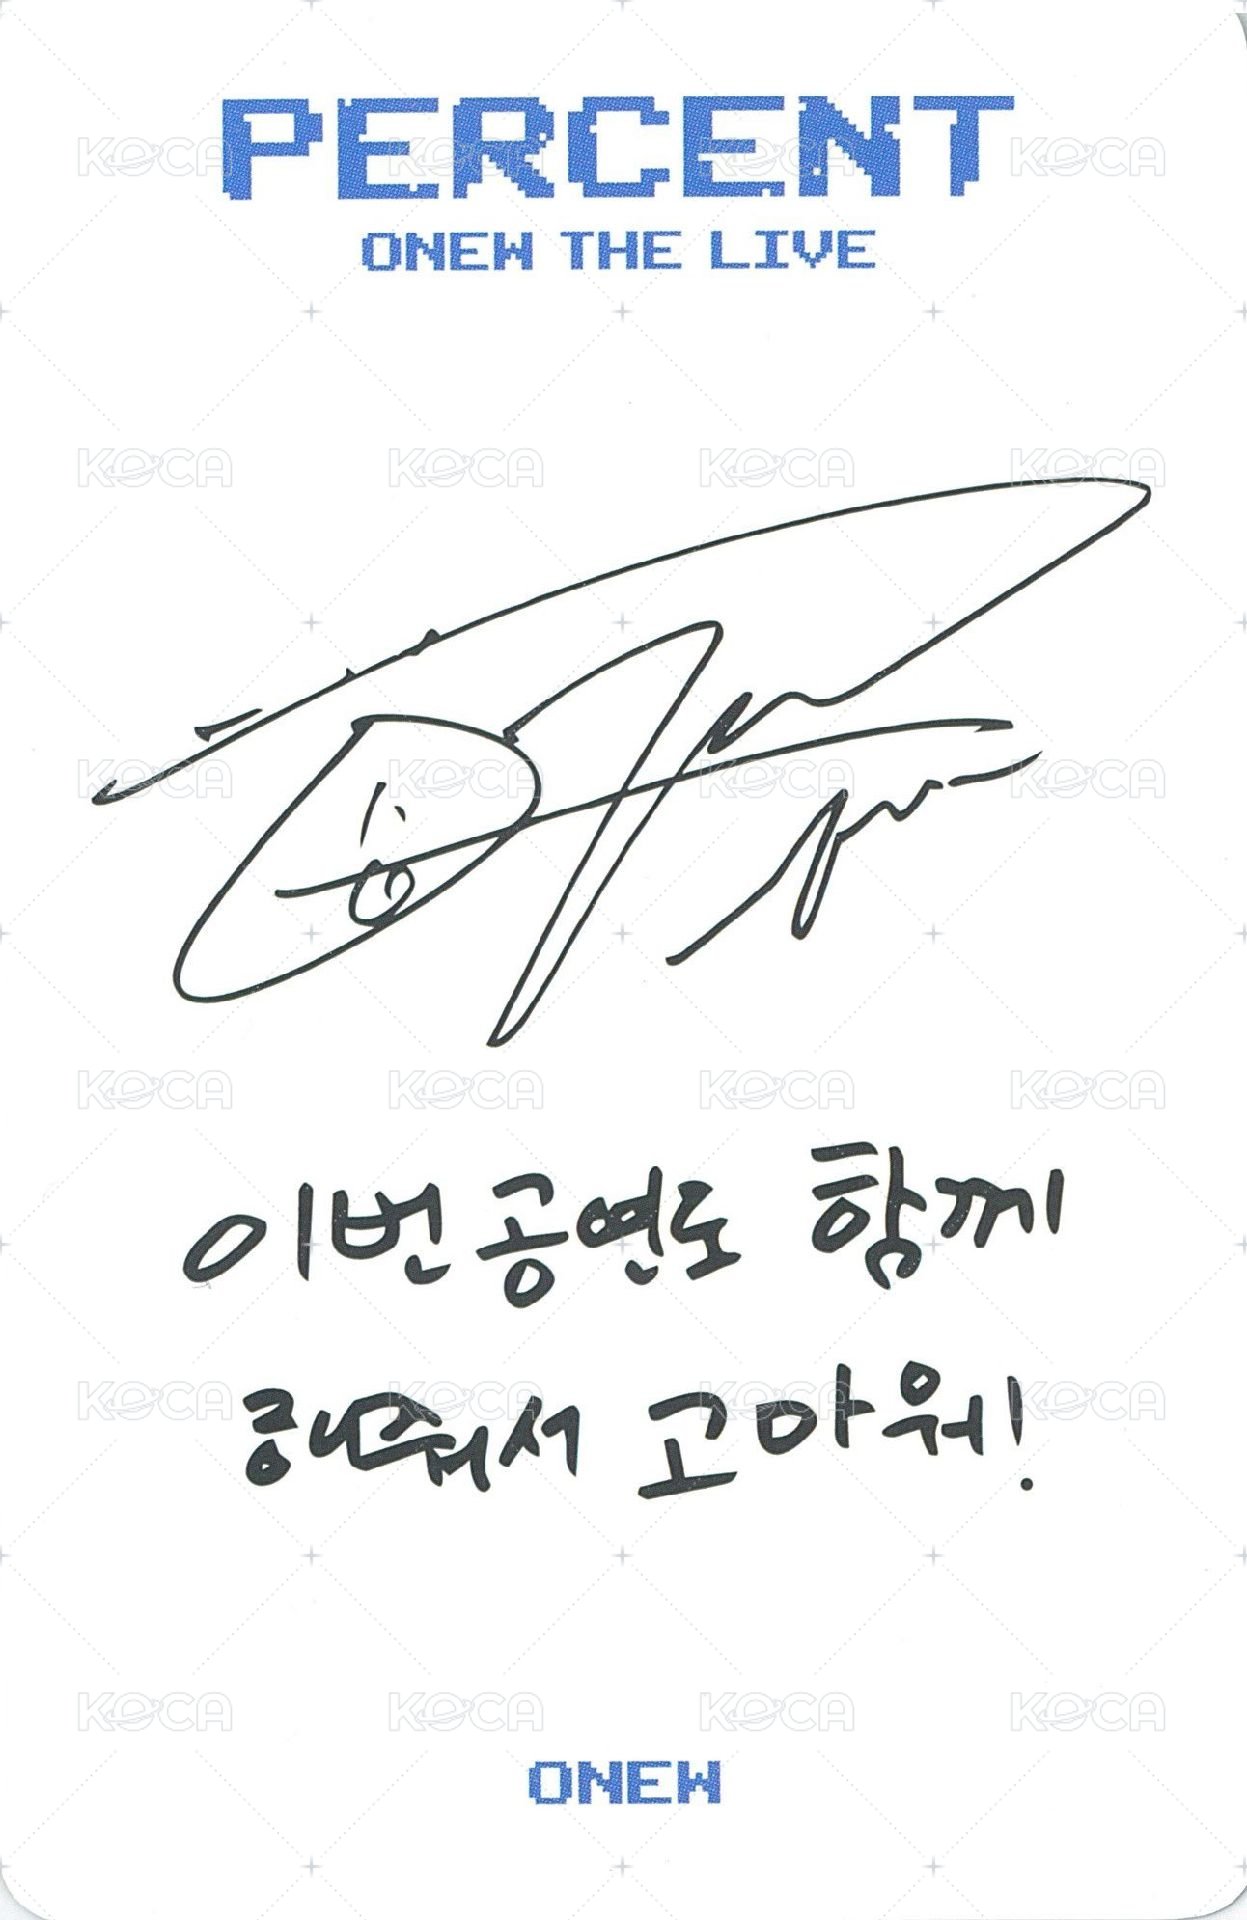 PERCENT
ONEW THE LIVE
이번 공연도 함께
해줘서 고마워!
ONEW
KOCA